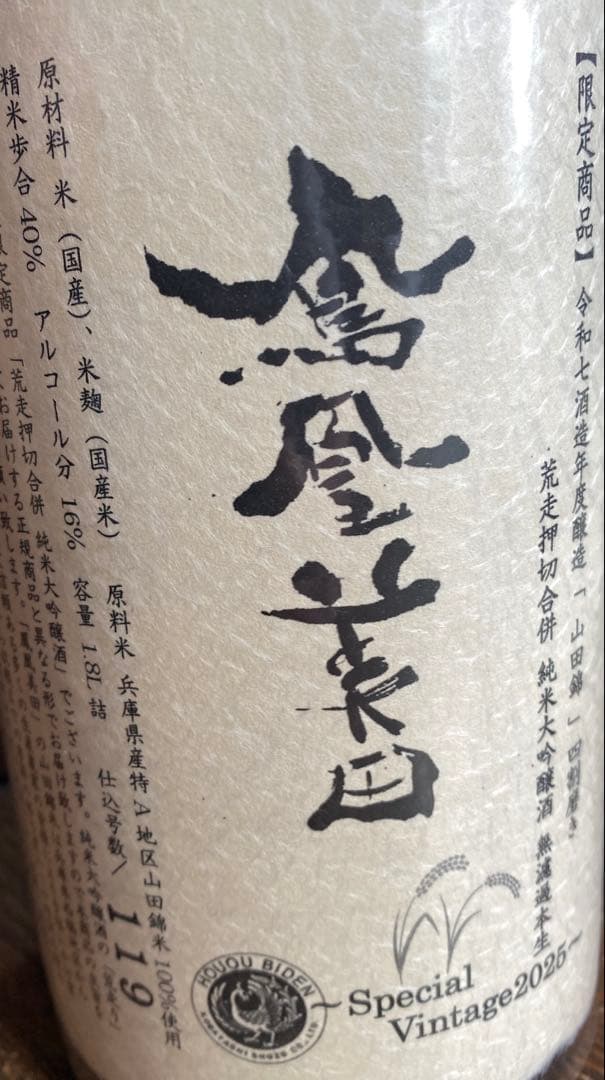 【限定商品】 令和七酒造年度醸造 「 山田錦 」 四割磨き
荒走押切合併 純米大吟醸酒 無濾過本生
鳳凰美田
~Special
Vintage2025~
HOUOU BIDEN
KOBAYASHI SHUZO CO.,LTD.
原料米 兵庫県産特A地区山田錦米100%使用
仕込号数/ 119
原材料 米 (国産)、米麹 (国産米)
精米歩合 40% アルコール分 16% 容量 1.8L 詰
限定商品 「荒走押切合併 純米大吟醸酒」 でございます。純米大吟醸酒の
お届けする正規商品と異なる形でお届け致しますので
願い致します。「鳳凰美田」の